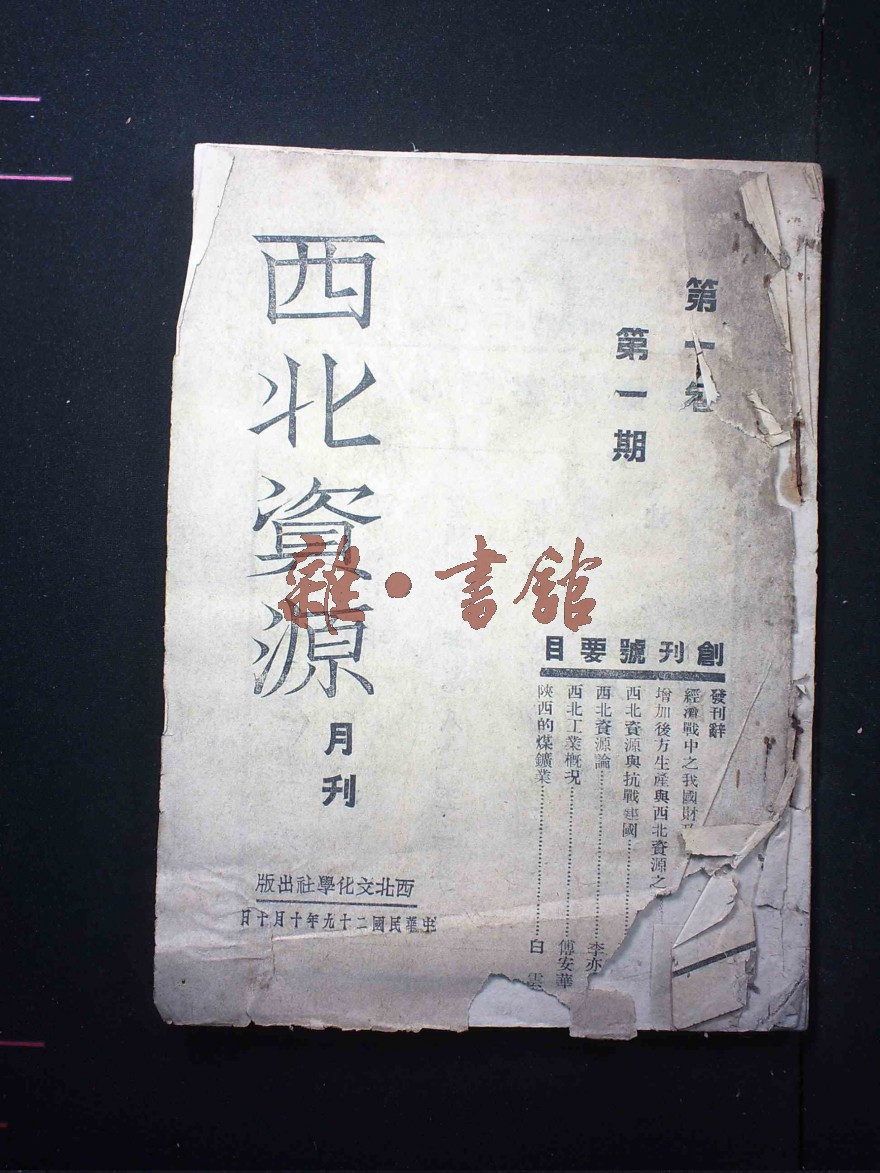 第一卷
第一期
西北資源
月刊
創刊號要目
發刊辭
經濟戰中之我國財政
增加後方生產與西北資源之
西北資源與抗戰建國
西北資源論⋯⋯李亦
西北工業概況⋯⋯傅安華
陝西的煤鑛業⋯⋯白 雲
西北文化學社出版
中華民國二十九年十月十日
雜·書館